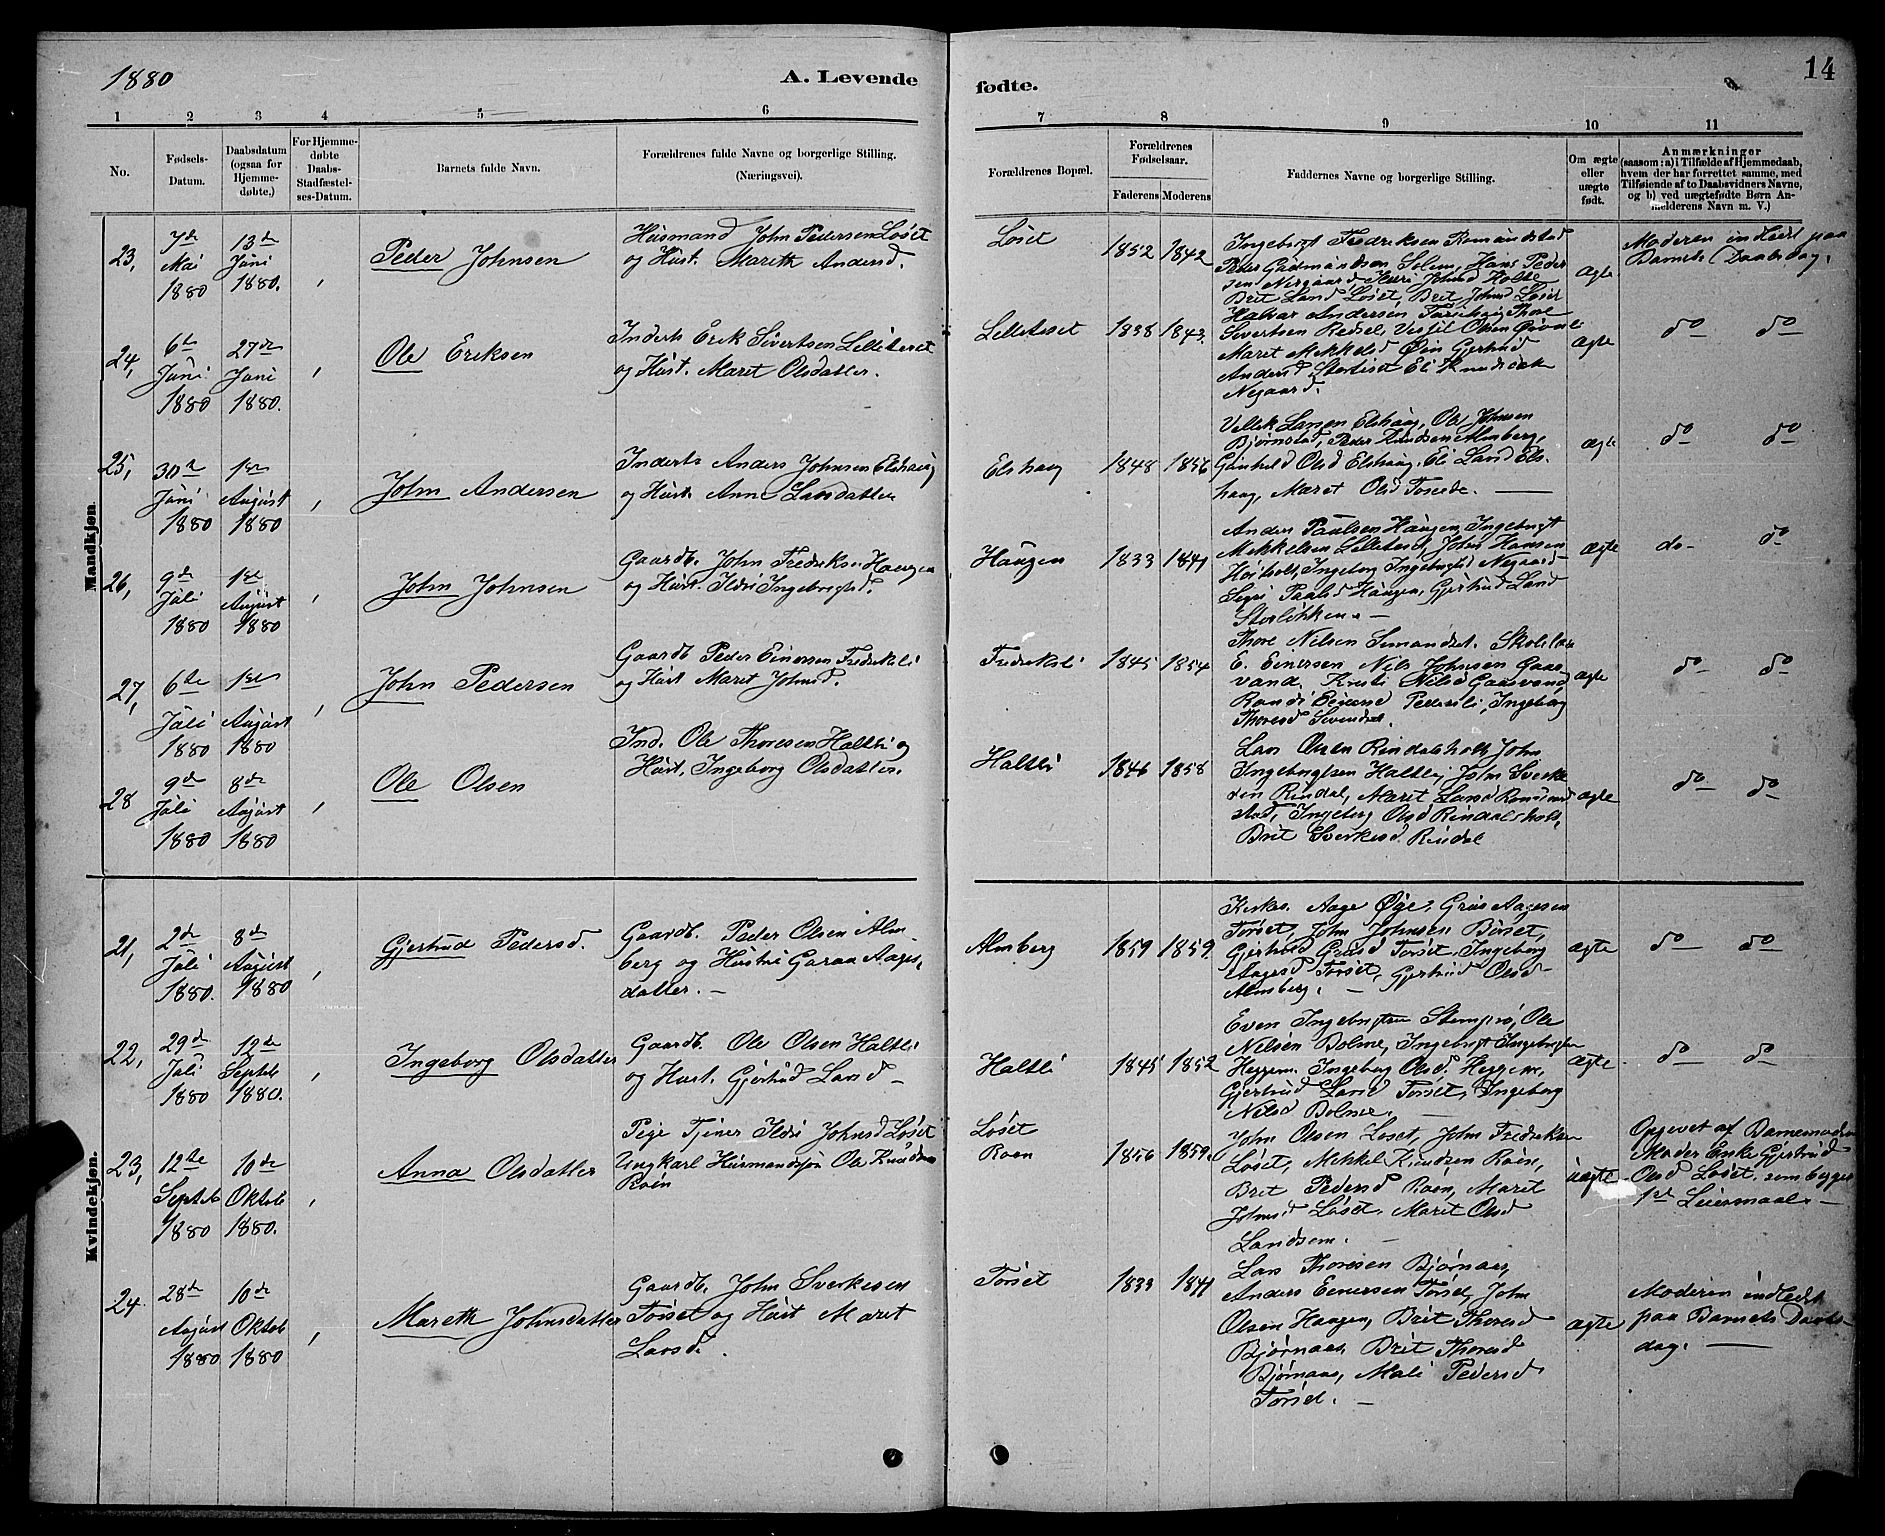 1880
A. Levende
fødte.
14
1 2 3 4 5 6 7 8 9 10 11
No.
Fødsels-
Datum.
Daabsdatum
(ogsaa for
Hjemme-
døbte,)
For Hjemme-
døbte
Daabs-
Stadfæstel-
ses-Datum.
Barnets fulde Navn.
Forældrenes fulde Navne og borgerlige Stilling.
(Næringsvei).
Forældrenes Bopæl.
Forældrenes
Fødselsaar.
Faderens Moderens
Faddernes Navne og borgerlige Stilling.
Om ægte
eller
uægte
født.
Anmærkninger
(saasom: a) i Tilfælde af Hjemmedaab,
hvem der har forrettet samme, med
Tilføiende af to Daabsvidners Navne,
og b) ved uægtefødte Børn An-
melderens Navn m. V.)
Mandkjøn.
23,
7de
Mai
1880
13de
Juni
1880.
Peder Johnsen
Husmand John Pedersen Løset
og Hust. Mareth Andersd.
Løset
1852 1842
Ingebrigt Fredriksen Romundstad
Peder Gudmundsen Solem, Hans Peder
sen Nergaard, Ildri Johnsd Holte
Brit Larsd Løset, Brit Johnsd Løset
ægte
Moderen indledt paa
Barnets Daabsdag.
24,
6te
Juni
1880
27de
Juni
1880.
Ole Eriksen
Inderts Erik Sivertsen Lilleteset
og Hust. Maret Olsdatter.
Lilleteset
1838 1843.
Halvar Andersen Thore
Sivertsen Olsen
Maret Mikkelsd Øien Gjertrud
Andersd Eli Knudsdat
Negaard.
ægte
do do
25,
30te
Juni
1880
1ste
August
1880
John Andersen
Inderts Anders Johnsen Elshaug
og Hust. Anne Larsdatter
Elshaug
1848 1856
Larsen Elshaug, Ole Johnsen
Bjørnstad, Peder Knudsen Almberg,
Gunhild Olsd Elshaug, Eli Larsd Els-
haug, Maret Olsd
ægte
do do
26,
9de
Juli
1880
1ste
August
1880
John Johnsen
Gaardb. John Fredriksen Haugen
og Hust. Ildri Ingebrigtsd.
Haugen
1833 1841
Anders Paulsen Haugen, Ingebrigt
Mikkelsen Lilleteset, John Hansen
Ingeborg Ingebrigtsd Negaard
Sigri Paulsd Haugen, Gjertrud Larsd
Storløkken. –
ægte
do- do
27,
6te
Juli
1880
1ste
August
1880
John Pedersen
Gaardb. Peder Einersen Fredriksli
og Hust Maret Johnsd.
Fredriksli
1845 1854
Thore Nilsen
E. Einersen, Nils Johnsen Gaas
vand, Kristi Nilsd Gaasvand
Randi Einersd Ingeborg
Thoresd
ægte
do do
28
9de
Juli
1880
8de
August
1880
Ole Olsen
Ind. Ole Thoresen Haltli og
Hust. Ingeborg Olsdatter.
Haltli
1846 1858
Lars Olsen Rindalsholt, John
Ingebrigtsen Haltli, John Sverke
sen Rindal, Maret Larsd Romund
stad, Ingeborg Olsd Rindalsholt,
Brit Sverkesd. Rindal
ægte
do do
Kvindekjøn.
21,
2de
Juli
1880.
8de
August
1880
Gjertrud Pedersd.
Gaardb. Peder Olsen Alm-
berg og Hustru Guraa Aages-
datter. –
Almberg
1859 1859
Kirkes. Aage Øye, Aagesen
Torset, John Johnsen Børset,
Torset, Ingeborg
Aagesd Torset, Gjertrud Olsd
Almberg. –
ægte
do do
22,
29de
Juli
1880
12te
Septeb
1880.
Ingeborg Olsdatter
Gaardb. Ole Olsen Haltli
og Hust. Gjertrud Larsd –
Haltli
1845 1852
Even Ingebrigtsen Ole
Nilsen Bolme, Ingebrigt Ingebrigtsen
Heggem, Ingeborg Olsd. Heggem,
Gjertrud Larsd Torset, Ingeborg
Nilsd Bolme. –
ægte
do do
23,
12te
Septeb
1880
10de
Oktob
1880.
Anna Olsdatter
Pige Tjener Ildri Johnsd Løset
Ungkarl Husmandssøn Ole Knudsen
Roen
Løset
Roen
1856 1859.
John Olsen Løset, John Fredriksen
Løset, Mikkel Knudsen Roen,
Brit Pedersd Roen, Marit
Johnsd Løset, Marit Olsd
Landsem. –
uægte
Opgivet af Barnemoderens
Moder Enke Gjertrud
Olsd Løset, som begges
1ste Leiermaal. –
24.
28de
August
1880
10de
Oktob
1880
Mareth Johnsdatter
Gaardb. John Sverkesen
Torset og Hust Maret
Larsd.
Torset
1833 1841
Lars Thoresen Bjørnaas,
Anders Einersen Torset, John
Olsen Haugen, Brit Thoresd
Bjørnaas, Brit Thoresd
Bjørnaas, Mali Pedersd
Torset. –
ægte
Moderen indledt
paa Barnets Daabs-
dag. –